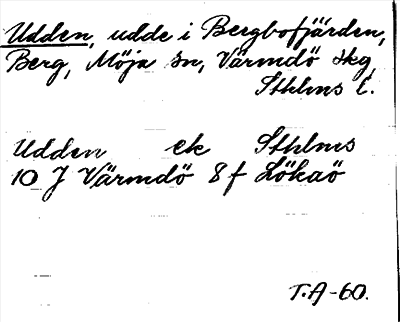 Udden, udde i Bergbofjärden,
Berg, Möja sn, Värmdö skg,
Sthlms l.
Udden ek Sthlms
10 J Värmdö 8 f Lökaö
T.A-60.